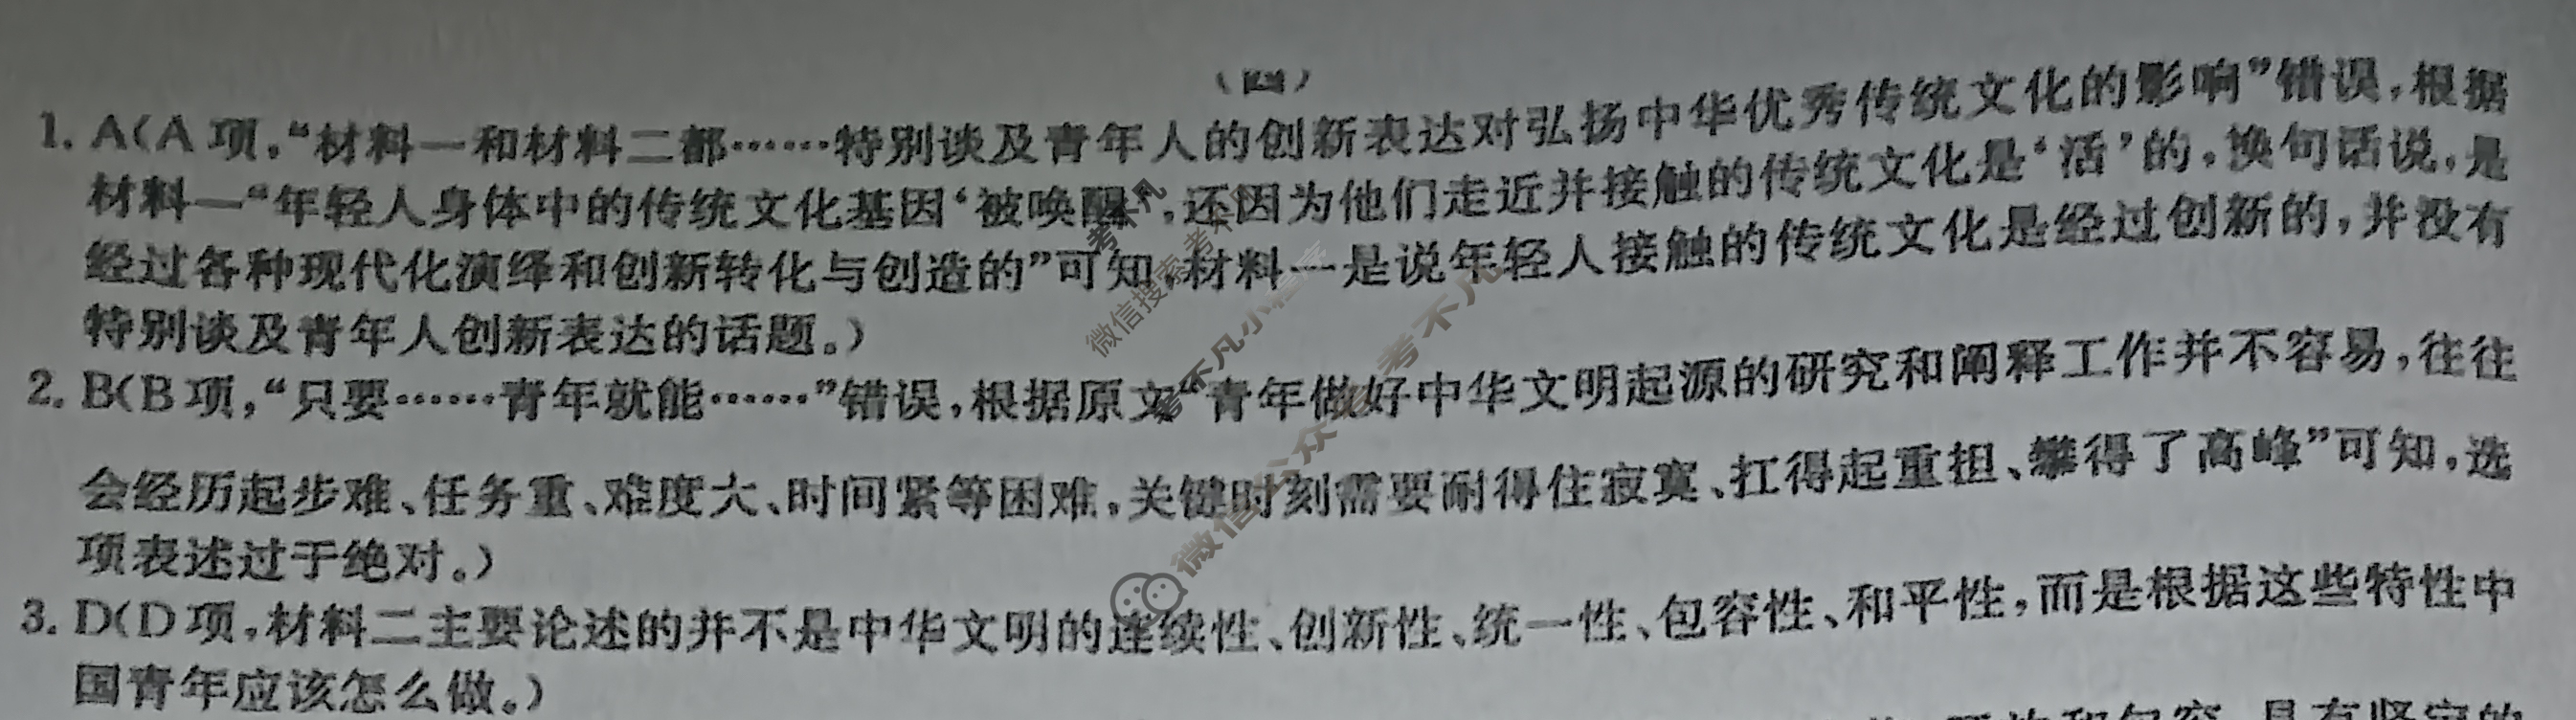 (四)
1. A(A 项,“材料一和材料二都……特别谈及青年人的创新表达对弘扬中华优秀传统文化的影响”错误,根据
材料一“年轻人身体中的传统文化基因‘被唤醒’,还因为他们走近并接触的传统文化是‘活’的,换句话说,是
经过各种现代化演绎和创新转化与创造的”可知,材料一是说年轻人接触的传统文化是经过创新的,并没有
特别谈及青年人创新表达的话题。)
2. B(B 项,“只要……青年就能……”错误,根据原文“青年做好中华文明起源的研究和阐释工作并不容易,往往
会经历起步难、任务重、难度大、时间紧等困难,关键时刻需要耐得住寂寞、扛得起重担、攀得了高峰”可知,选
项表述过于绝对。)
3. D(D 项,材料二主要论述的并不是中华文明的连续性、创新性、统一性、包容性、和平性,而是根据这些特性中
国青年应该怎么做。)
考不凡
微信搜索考不凡
考不凡小程序
微信公众号:考不凡